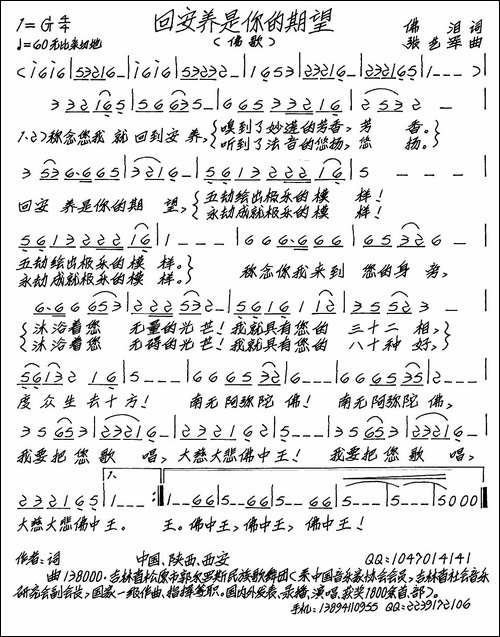 回安养是你的期望
(佛歌)
1=G 4/4
♩=60 无比亲切地
佛泪 词
张艺军 曲
(i6i6|53216-|i6i6|53232-|1653|23216-|232165|1---)
332165|56635-|66533216|2532-|
1.2.称念您我就回到安养,{嗅到了妙莲的芳香,芳香。}
{听到了法音的悠扬,悠扬。}
3 53·665|3216-|5613222 16|5---|
回安养是你的期望,{五劫绘出极乐的模样!
永劫成就极乐的模样!
5613222 16|1---|666·666|65326-|
五劫绘出极乐的模样。}
永劫成就极乐的模样。}
称念你我来到您的身旁,
6·66653|222532-|5616112|35523-|
{沐浴着您无量的光芒!我就具有您的三十二相,}
{沐浴着您无碍的光芒!我就具有您的八十种好,}
5613216|5---|6665326|5---|666535|2---|
度众生去十方! 南无阿弥陀佛! 南无阿弥陀佛,
35653|23216-|2321612|5---|35653|23216-|
我要把您歌唱,大慈大悲佛中王! 我要把您歌唱,
232165|1---:‖1--66|5--66|5--66|5---|5---|5000‖
大慈大悲佛中王。 王。佛中王,佛中王,佛中王!
作者:词 中国、陕西、西安 QQ=1047014141
曲 138000·吉林省松原市郭尔罗斯民族歌舞团(系中国音乐家协会会员,吉林省社会音乐
研究会副会长,国家一级作曲、指挥兼职。国内外发表、录播、演唱、获奖1800余首、部)。
手机:13894110955 QQ:2239172106